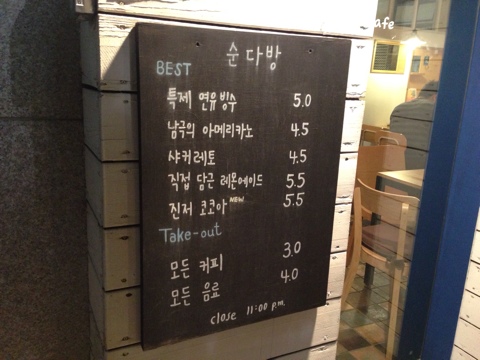 순다방
BEST
특제 연유빙수 5.0
남극의 아메리카노 4.5
샤커레토 4.5
직접 담근 레몬에이드 5.5
진저 코코아 NEW 5.5
Take-out
모든 커피 3.0
모든 음료 4.0
close 11:00 p.m.
afe